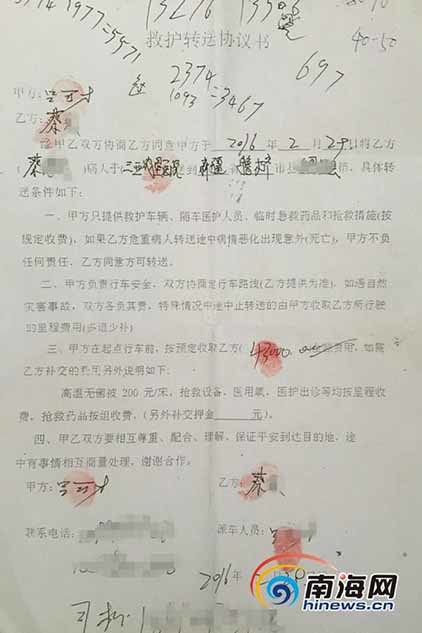 救护转送协议书
2374
697
1093 = 3467
40-50
甲方:
乙方: 秦
经甲乙双方协商乙方同意甲方于 2016 年 2 月 29 日将乙方
(秦 )病人于 送到 新疆 市县 桥,具体转
送条件如下:
一、甲方只提供救护车辆、随车医护人员、临时急救药品和抢救措施(按
规定收费),如果乙方危重病人转送途中病情恶化出现意外(死亡),甲方不负
任何责任,乙方同意方可转送。
二、甲方负责行车安全,双方协商定行车路线(乙方提供为准),如遇自然
灾害事故,双方各负其责,特殊情况中途中止转送的由甲方收取乙方所行驶
的里程费用(多退少补)
三、甲方在起点行车前,按预定收取乙方( 43000 费用,如需
乙方补交的费用另外说明如下:
高温无佛被 200 元/床,抢救设备、医用氧,医护出诊等均按里程收
费,抢救药品按组收费,(另外补交押金 元)。
四、甲乙双方要相互尊重、配合、理解,保证平安到达目的地,途
中有事情相互商量处理,谢谢合作。
甲方: 乙方: 秦
联系电话: 派车人员:
2016年
司机:
南海网
hinews.cn